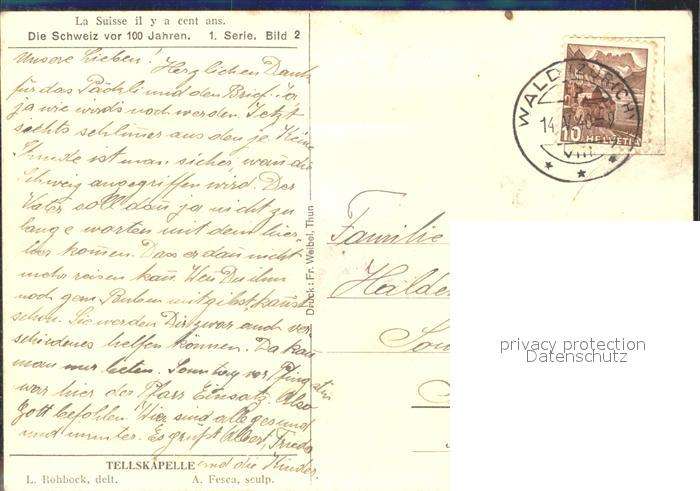 La Suisse il y a cent ans.
Die Schweiz vor 100 Jahren. 1. Serie. Bild 2
Unsere Lieben! Herzlichen Dank
für das Päckli und den Brief. Ja
ja wie wirds noch werden. Jetzt
siehts schlimer aus den je. Keine
Stunde ist man sicher, wan die
Schweiz angegriffen wird. Der
Vater soll dan ja nicht zu
lange warten mit dem hier-
her komen. Dass er dan nicht
mehr reisen kan. Wen Du ihm
noch gern mitgibst kanst
schon. Sie werden Dir zwar auch ver-
schiedenes helfen können. Da kan
man nur beten. Sonntag vor Pfingsten
war hier der Pfarr Einsatz. Also
Gott befohlen. Wir sind alle gesund
und munter. Es grüsst Albert, Frieda
und die Kinder.
TELLSKAPELLE
L. Rohbock, delt. A. Fesca, sculp.
Druck: Fr. Weibel, Thun
WALD (ZÜRICH)
14. V. 40-9
VIII
10 HELVETIA
Familie
privacy protection
Datenschutz